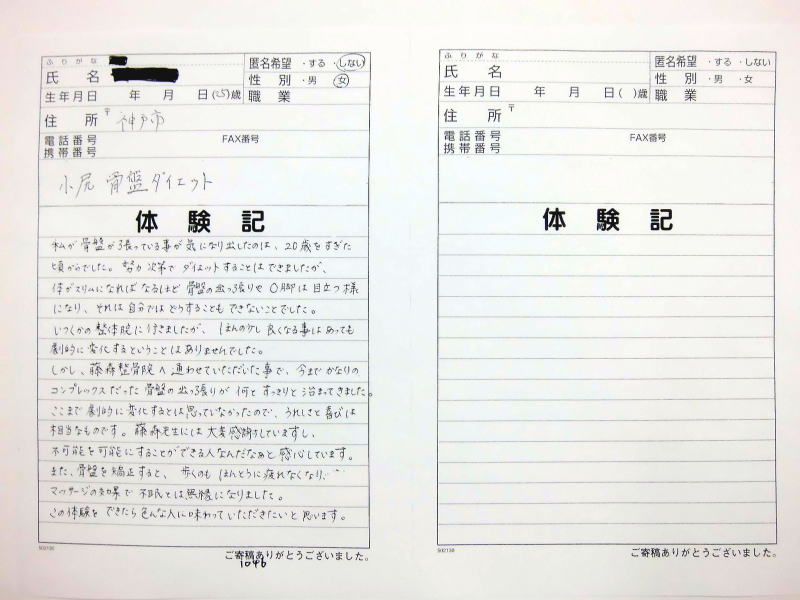 ふりがな
氏 名
匿名希望 ・する ・しない
性 別 ・男 ・女
生年月日 年 月 日(25)歳
職 業
住 所 〒 神戸市
電話番号
携帯番号
FAX番号
小尻 骨盤ダイエット
体 験 記
私が骨盤が張っている事が気になり出したのは、20歳をすぎた
頃からでした。努力次第でダイエットすることはできましたが、
体がスリムになればなるほど骨盤の出っ張りやO脚は目立つ様
になり、それは自分ではどうすることもできないことでした。
いくつかの整体院に行きましたが、ほんの少し良くなる事はあっても
劇的に変化するということはありませんでした。
しかし、藤森整骨院へ通わせていただいた事で、今までかなりの
コンプレックスだった骨盤の出っ張りが何とすっきりと治まってきました。
ここまで劇的に変化するとは思っていなかったので、うれしさと喜びは
相当なものです。藤森先生には大変感謝していますし、
不可能を可能にすることができる人なんだなぁと感心しています。
また、骨盤を矯正すると、歩くのもほんとうに疲れなくなり…
マッサージの効果で不眠とは無縁になりました。
この体験をできたら色んな人に味わっていただきたいと思います。
S02130
ご寄稿ありがとうございました。
1046
ふりがな
氏 名
匿名希望 ・する ・しない
性 別 ・男 ・女
生年月日 年 月 日( )歳
職 業
住 所 〒
電話番号
携帯番号
FAX番号
体 験 記
S02130
ご寄稿ありがとうございました。